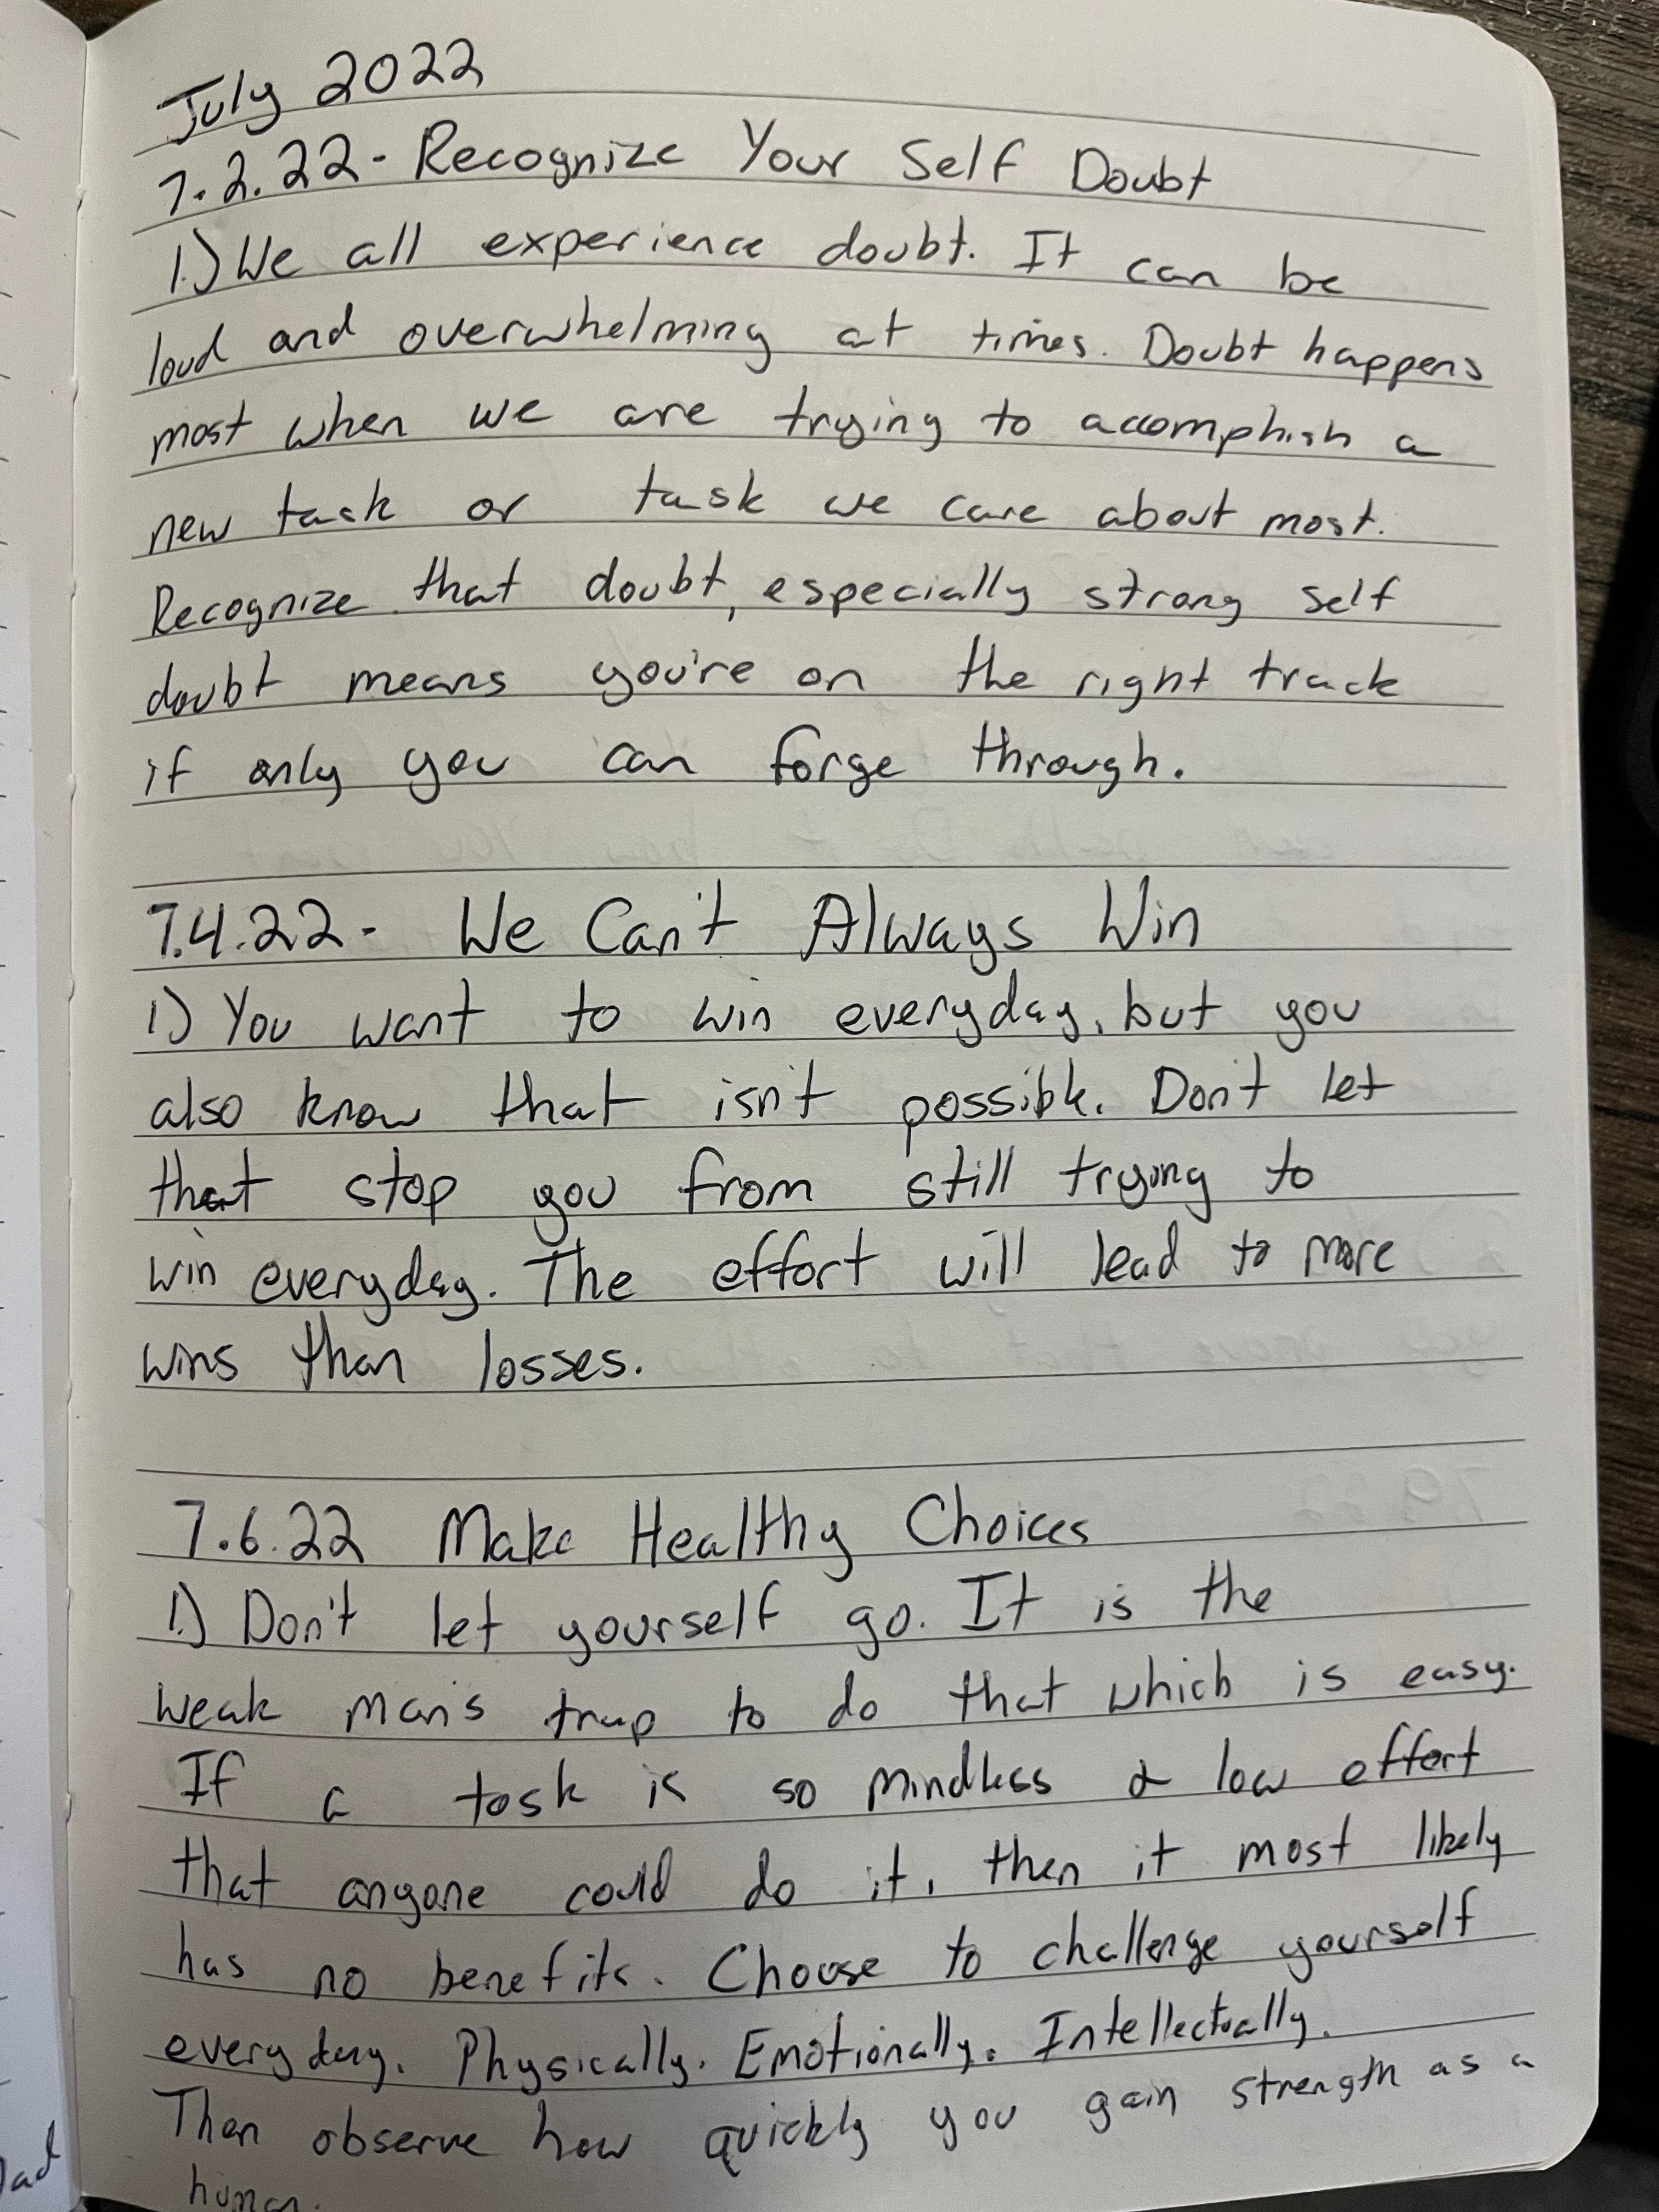 July 2022
7.2.22 - Recognize Your Self Doubt
1.) We all experience doubt. It can be
loud and overwhelming at times. Doubt happens
most when we are trying to accomplish a
new task or task we care about most.
Recognize that doubt, especially strong self
doubt means you're on the right track
if only you can forge through.
7.4.22 - We Can't Always Win
1.) You want to win everyday, but you
also know that isn't possible. Don't let
that stop you from still trying to
win everyday. The effort will lead to more
wins than losses.
7.6.22 Make Healthy Choices
1.) Don't let yourself go. It is the
weak man's trap to do that which is easy.
If a task is so mindless & low effort
that anyone could do it, then it most likely
has no benefits. Choose to challenge yourself
everyday. Physically. Emotionally. Intellectually.
Then observe how quickly you gain strength as a
human.
Dad